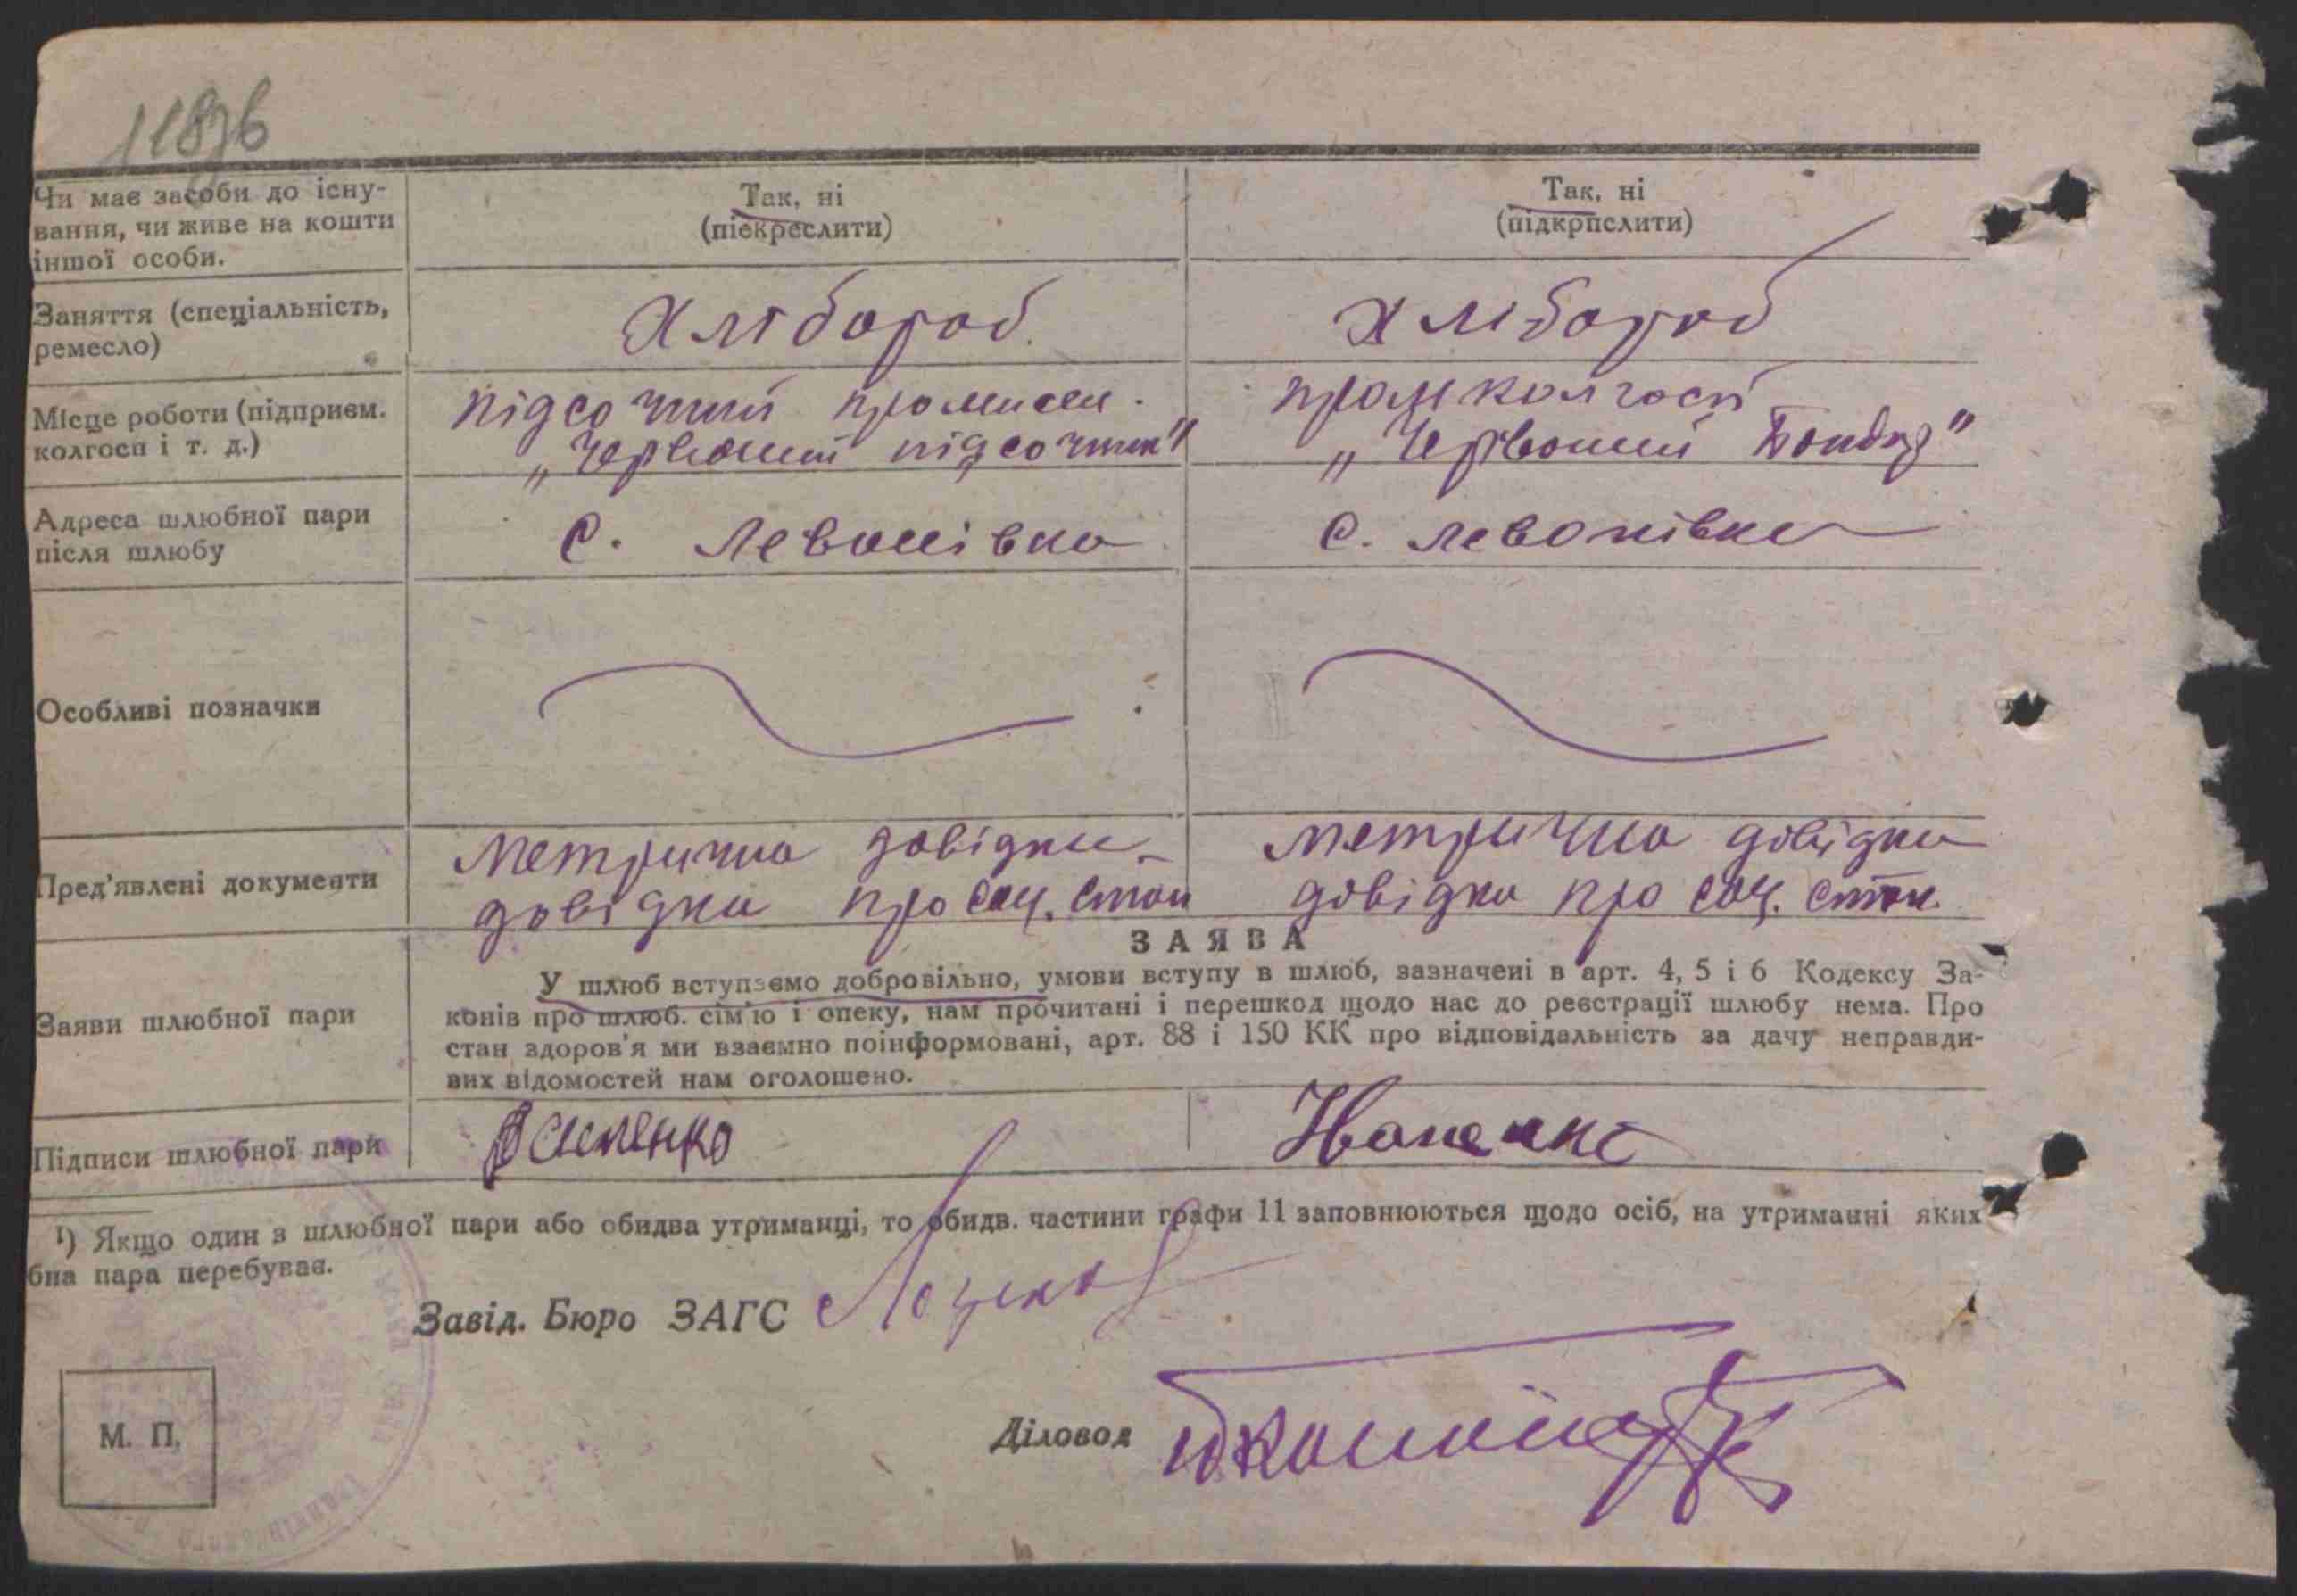 Чи має засоби до існу-
вання, чи живе на кошти
іншої особи.
Так, ні
(піекреслити)
Так, ні
(підкрпслити)
Заняття (спеціальність,
ремесло)
Хлібороб
Хлібороб
Місце роботи (підприєм.
колгосп і т. д.)
підсочний промисел.
„Червоний підсочник"
промколгосп
„Червоний Бондар"
Адреса шлюбної пари
після шлюбу
С. Левонівка
С. Левонівка
Особливі позначки
Пред'явлені документи
Метрична довідка
довідка про соц. стан
метрична довідка
довідка про соц. стан
ЗАЯВА
Заяви шлюбної пари
У шлюб вступаємо добровільно, умови вступу в шлюб, зазначені в арт. 4, 5 і 6 Кодексу За-
конів про шлюб. сім'ю і опеку, нам прочитані і перешкод щодо нас до реєстрації шлюбу нема. Про
стан здоров'я ми взаємно поінформовані, арт. 88 і 150 КК про відповідальність за дачу неправди-
вих відомостей нам оголошено.
Підписи шлюбної пари
Іваненко
¹) Якщо один з шлюбної пари або обидва утриманці, то обидв. частини графи 11 заповнюються щодо осіб, на утриманні яких
бна пара перебуває.
Завід. Бюро ЗАГС
Діловод
М. П.